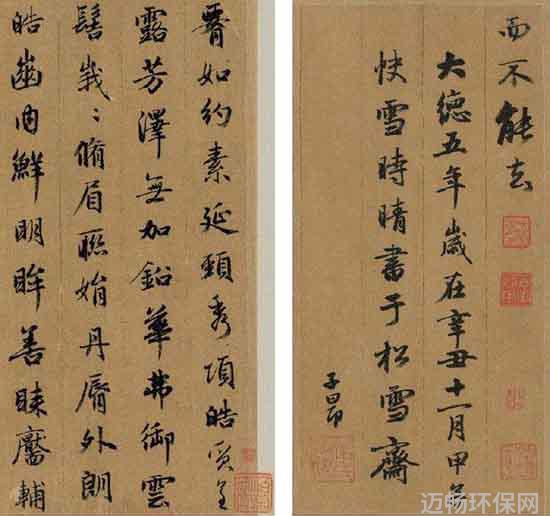 脣如約素延頸秀項皓質呈
露芳澤無加鉛華弗御雲
髻峩〻脩眉聯娟丹脣外朗
皓齒內鮮明眸善睞靨輔
而不能去
大德五年歲在辛丑十一月甲
快雪時晴書于松雪齋
子昂
迈畅环保网